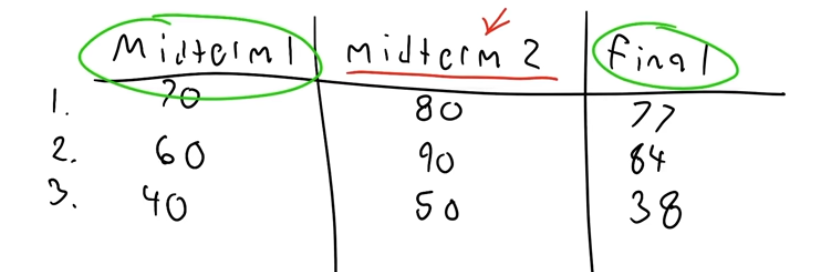 Midterm 1 Midterm 2 Final
1. 70 80 77
2. 60 90 84
3. 40 50 38